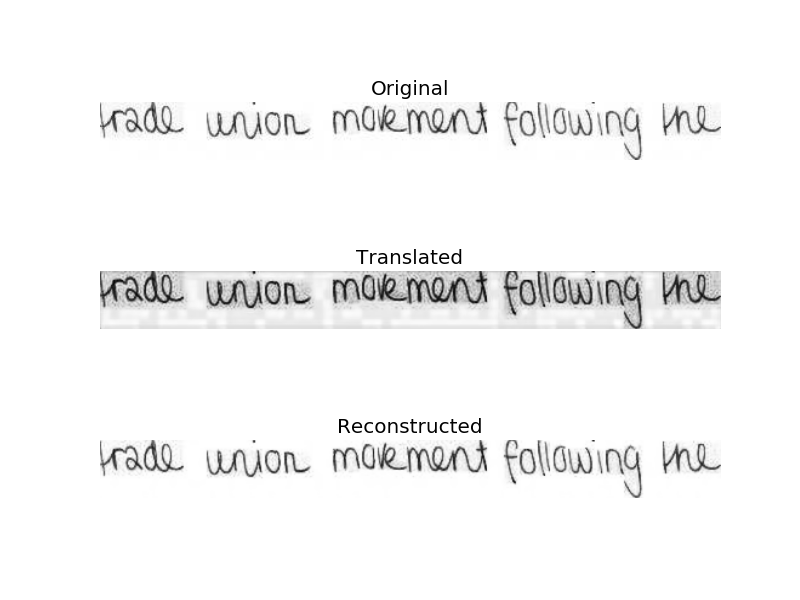 Original
trade union movement following the
Translated
trade union movement following the
Reconstructed
trade union movement following the